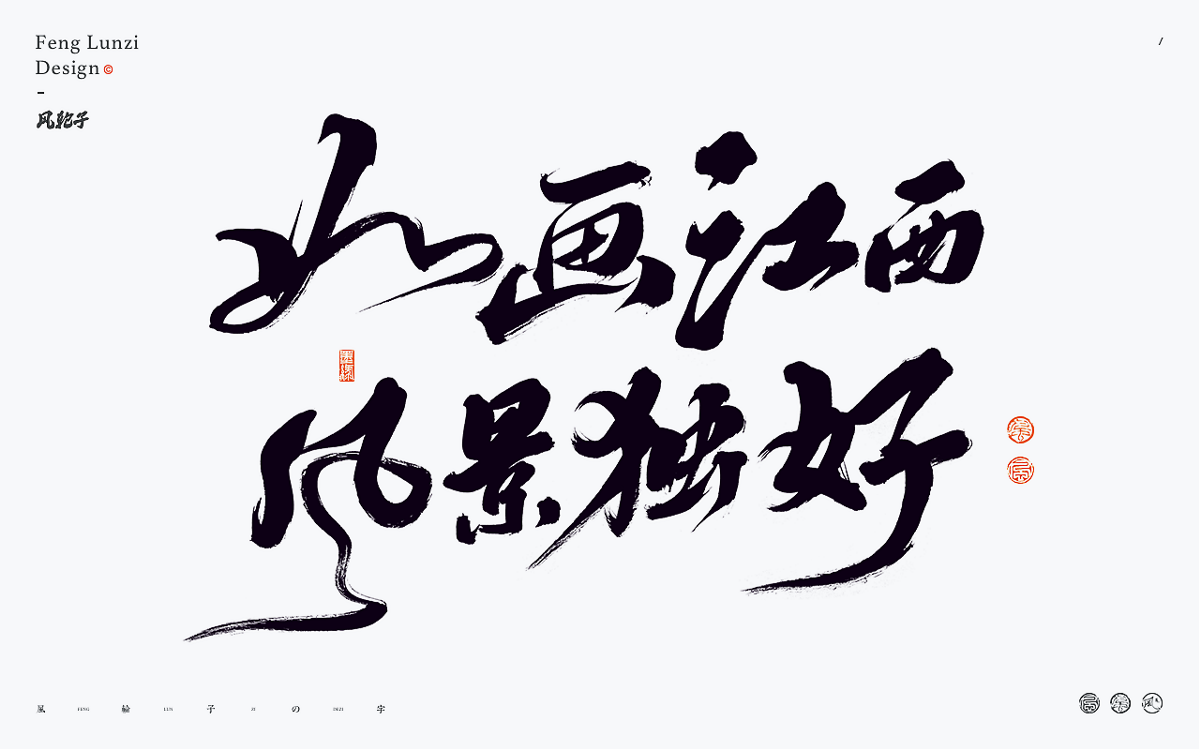 Feng Lunzi
Design©
-
风轮子
/
如画江西
风景独好
風 FENG 輪 LUN 子 ZI の 字